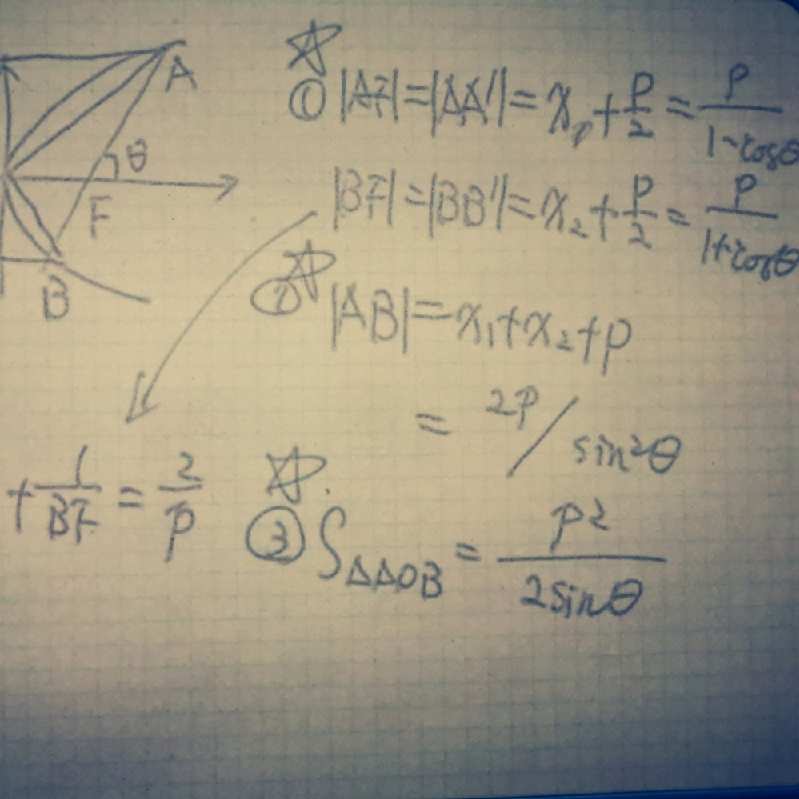 A
① |AF|=|AA'|=x₁+p/2=p/(1-cosθ)
θ
|BF|=|BB'|=x₂+p/2=p/(1+cosθ)
F
B
② |AB|=x₁+x₂+p
=2p/sin²θ
+1/BF=2/p
③ S△AOB=p²/(2sinθ)